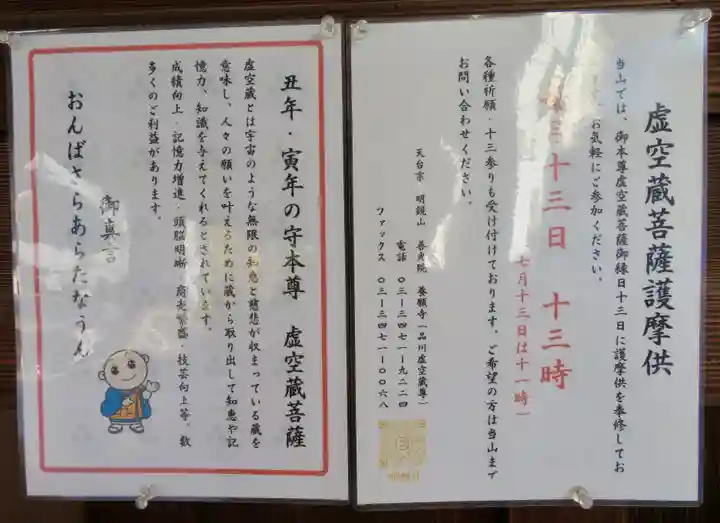 虚空蔵菩薩護摩供
当山では、御本尊虚空蔵菩薩御縁日十三日に護摩供を奉修してお
ります。お気軽にご参加ください。
十三日 十三時
七月十三日は十一時
各種祈願・十三参りも受け付けております。ご希望の方は当山まで
お問い合わせください。
天台宗 明鏡山 善光院 養願寺(品川虚空蔵尊)
電話 〇三-三四七一-九二二四
ファックス 〇三-三四七一-〇〇六八
丑年・寅年の守本尊 虚空蔵菩薩
虚空蔵とは宇宙のような無限の知恵と慈悲が収まっている蔵を
意味し、人々の願いを叶えるために蔵から取り出して知恵や記
憶力、知識を与えてくれるとされています。
成績向上・記憶力増進・頭脳明晰・商売繁盛・技芸向上等、数
多くのご利益があります。
御真言
おんばさらあらたなうん